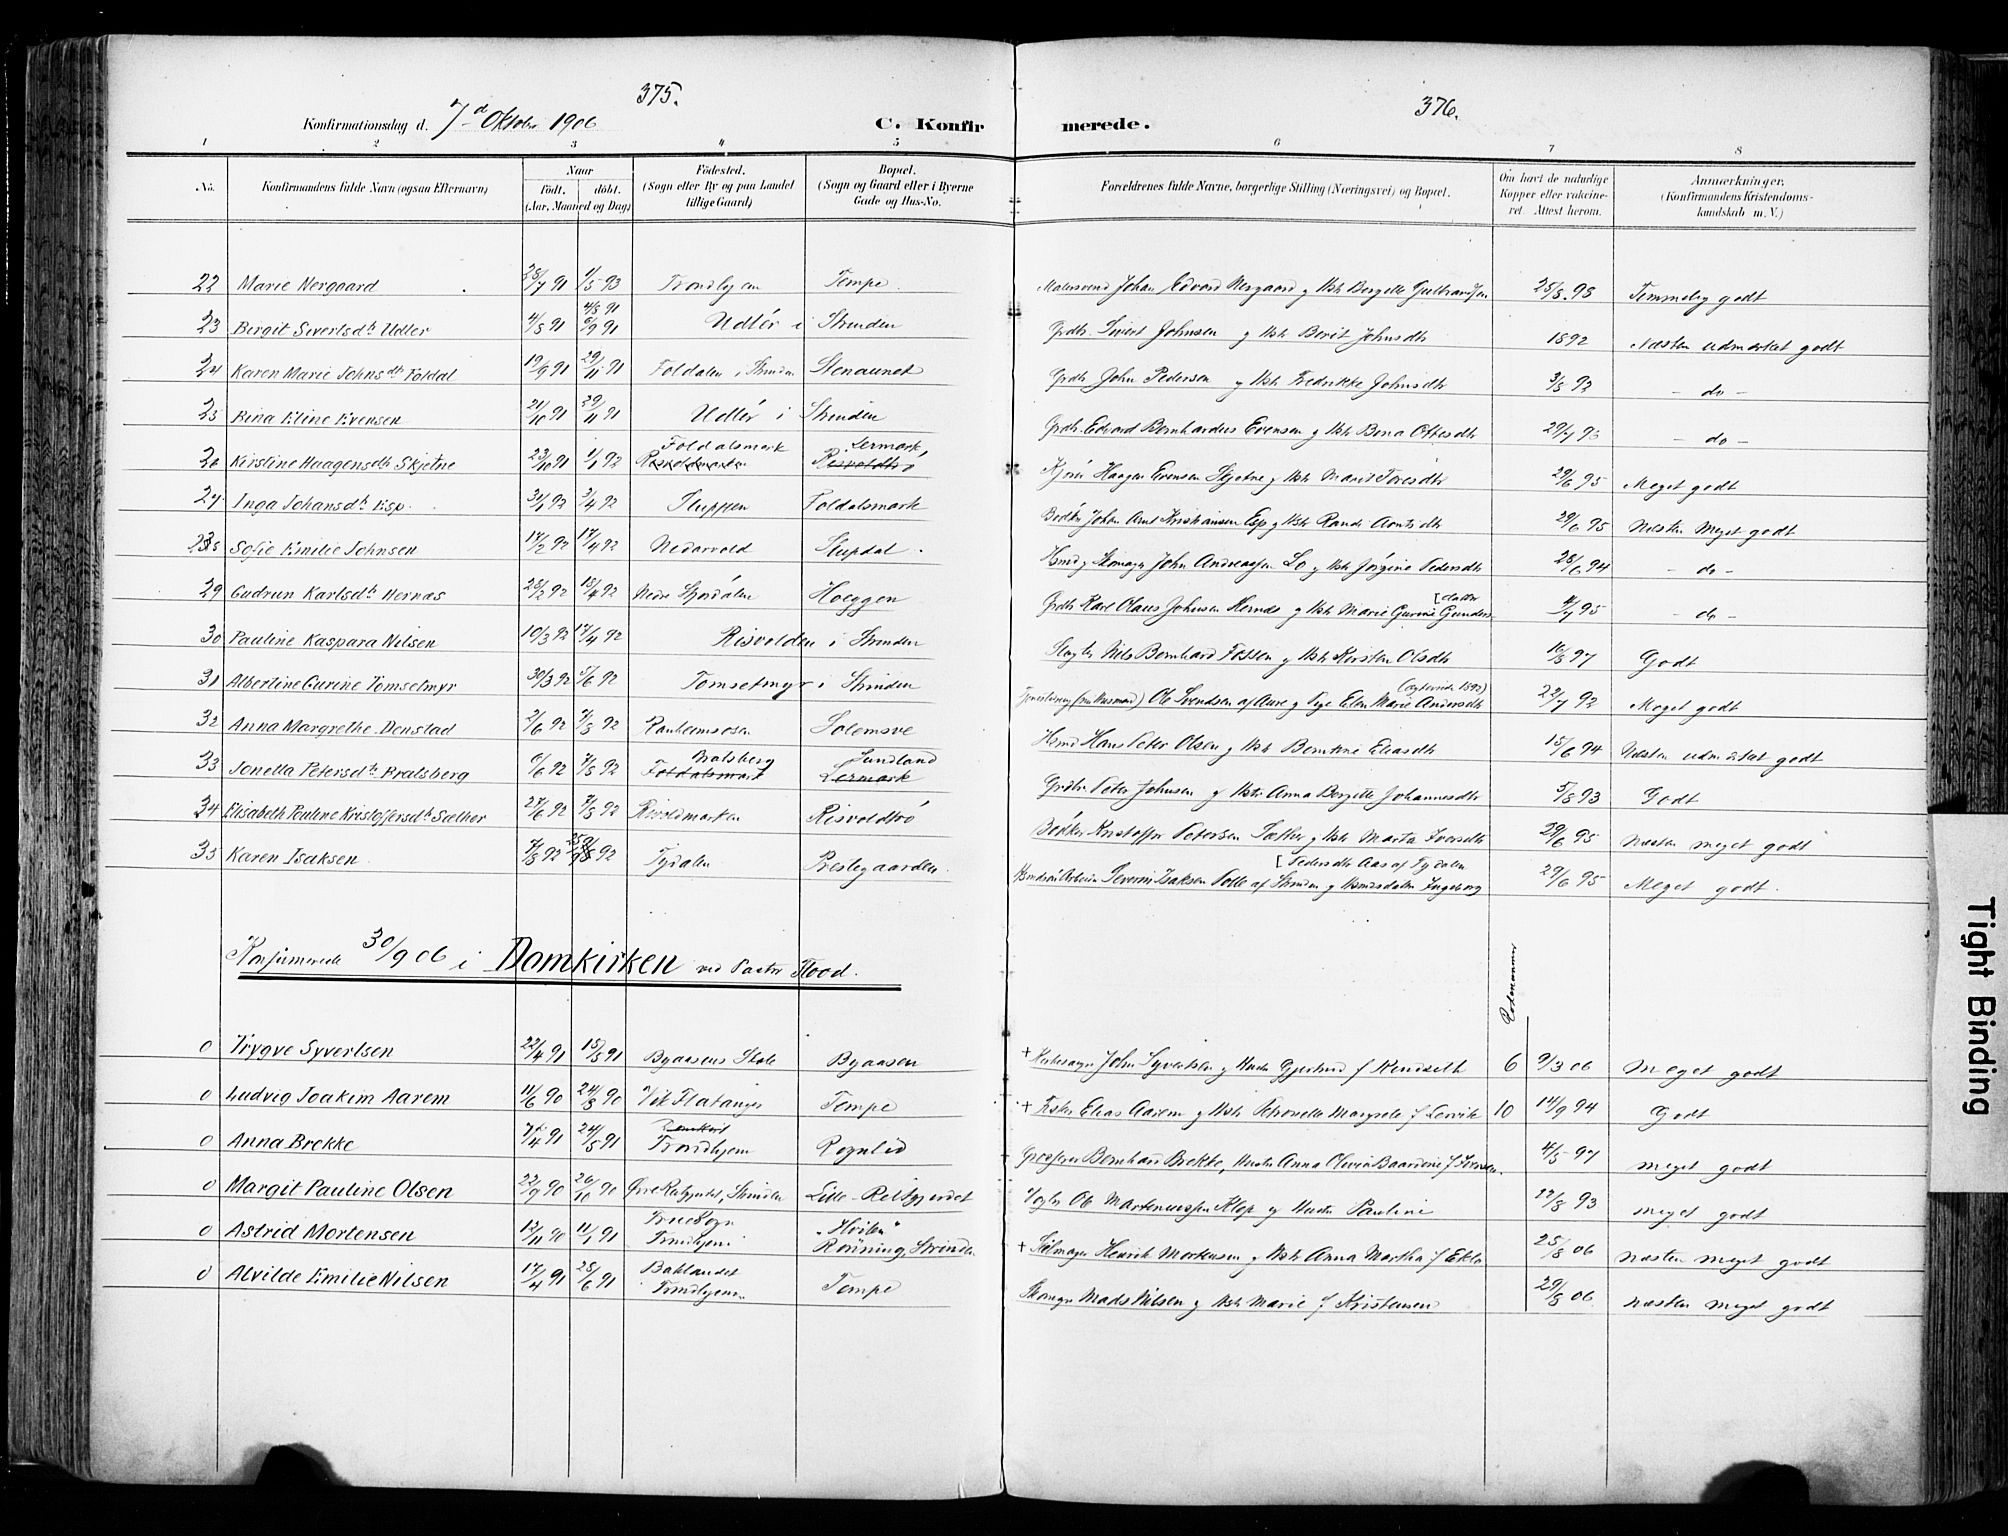 375.
376.
Konfirmationsdag d. 7d Oktober 1906
C. Konfirmerede.
1 2 3 4 5 6 7 8
No. Konfirmandens fulde Navn (ogsaa Efternavn) Naar Født. døbt. (Aar, Maaned og Dag) Fødested. (Sogn eller By og paa Landet tillige Gaard) Bopæl. (Sogn og Gaard eller i Byerne Gade og Hus-No. Forældrenes fulde Navne, borgerlige Stilling (Næringsvei) og Bopæl. Om havt de naturlige Kopper eller vakcineret. Attest herom. Anmærkninger. (Konfirmandens Kristendomskundskab m. V.)
22 Marie Nergaard 28/7 91 1/5 93 Trondhjem Tempe Malersvend Johan Edvard Nergaard g Hstr Bergitte Gulbrandsen 25/8 98 Temmelig godt
23 Birgit Sivertsdtr Udler 4/8 91 6/9 91 Udlér i Strinden Grdbr. Sivert Johnsen g Hstr Berit Johnsdtr 1892 Næsten udmærket godt
24 Karen Marie Johnsdtr Foldal 19/9 91 29/11 91 Foldalen i Strinden Stenaunet Grdbr John Pedersen g Hstr Fredrikke Johnsdtr 3/8 92 - do -
25 Bina Eline Evensen 21/10 91 29/11 91 Udlér i Strinden Grdbr. Edvard Bernhardus Evensen g Hstr Bona Ottesdtr - do -
26 Kirstine Haagensdtr Skjetne 23/10 91 1/1 92 Foldalsmark Lermark Haagen Evensen Skjetne g Hstr Marit Toresdtr 29/6 95 Meget godt
27 Inga Johansdtr Esp. 31/1 92 3/4 92 Foldalsmark Bødker Johan Arnt Kristiansen Esp g Hstr Randi Arntsdtr 29/6 95 Næsten meget godt
28 Sofie Emilie Johnsen 17/2 92 17/4 92 Nedarvold Stupdal Hsmd g Skomagr John Andreassen Lo g Hstr Jørgine Pedersdtr 28/6 94 - do -
29 Gudrun Karlsdtr Hernæs 28/2 92 18/4 92 Nedre Hoeggen Grdbr Karl Olaus Johnsen Hernæs g Hstr Marie Gurine Gunders[datter 95 - do -
30 Pauline Kaspara Nilsen 10/3 92 17/4 92 Risvolden i Strinden Nils Bernhard Fossen g Hstr Kirsten Olsdtr 16/8 97 Godt
31 Albertine Gurine Tomsetmyr 30/3 92 5/6 92 Tomsetmyr i Strinden Ole Svendsen af Aure g Pige Elen Marie Andersdtr 22/7 92 Meget godt
32 Anna Margrethe Denstad 2/6 92 7/8 92 Ranheimsosen Solemsve Hsmd Hans Peter Olsen g Hstr Berntine Eliasdtr 15/6 94 Næsten udmærket godt
33 Jonetta Petersdtr Bratsberg 6/6 92 7/8 92 Bratsberg Foldalsmark Sundland Lermark Grdbr Peter Johnsen g Hstr Anna Bergitte Johannesdtr 5/8 93 Godt
34 Elisabeth Pauline Kristoffersdtr Sæther 27/6 92 7/8 92 Risvoldmarken Risvoldtrø Bødker Kristoffer Petersen Sæther g Hstr Marta Iversdtr 29/6 95 Næsten meget godt
35 Karen Isaksen 7/8 92 Tydalen Prestegaarden Severin Isaksen af Strinden g Ingeborg [Pedersdtr Aas af Tydalen 29/6 95 Meget godt.
Konfirmerede 30/9 06 i Domkirken ved Pastor Flood.
0 Trygve Syvertsen 22/4 91 18/5 91 Byaasens Skole Byaasen + John Syvertsen g Hustr Gjertrud f 6 9/3 06 Meget godt
0 Ludvig Joakim Aarem 11/6 90 24/8 90 Vik Flatanger Tempe + Elias Aarem g Hstr Petronelle Margrete f Lervik 10 14/9 94 Godt
0 Anna Brekke 24/5 91 Trondhjem Rognlid Bernhard Brekke, Hustr Anna Olivia Baardine f Iversen. 4/5 97 Meget godt
0 Margit Pauline Olsen 22/9 90 26/10 90 Strinden Lille-Reitgjerdet Ole Martinussen Klep g Hustr Pauline 22/8 93 Meget godt
0 Astrid Mortensen 12/11 90 11/1 91 Fruesogn Trondhjem "Hvilen" Rønning, Strinden + Henrik Mortensen g Hstr Anna Martha f Ekle 25/8 06 Næsten meget godt
0 Alvilde Emilie Nilsen 17/4 91 28/6 91 Baklandet Trondhjem Tempe Skomgr Mads Nilsen g Hstr Marie f Kristensen 29/8 06 Næsten meget godt
Tight Binding